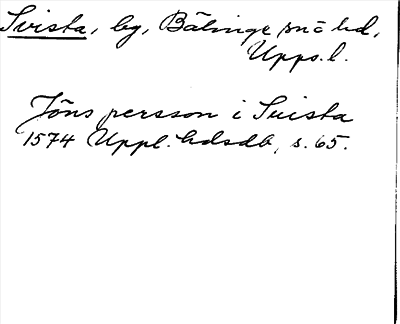 Svista, by, Bälinge sn o hd,
Upps. l.
Jöns persson i Svista
1574 Uppl. hdsdb, s. 65.